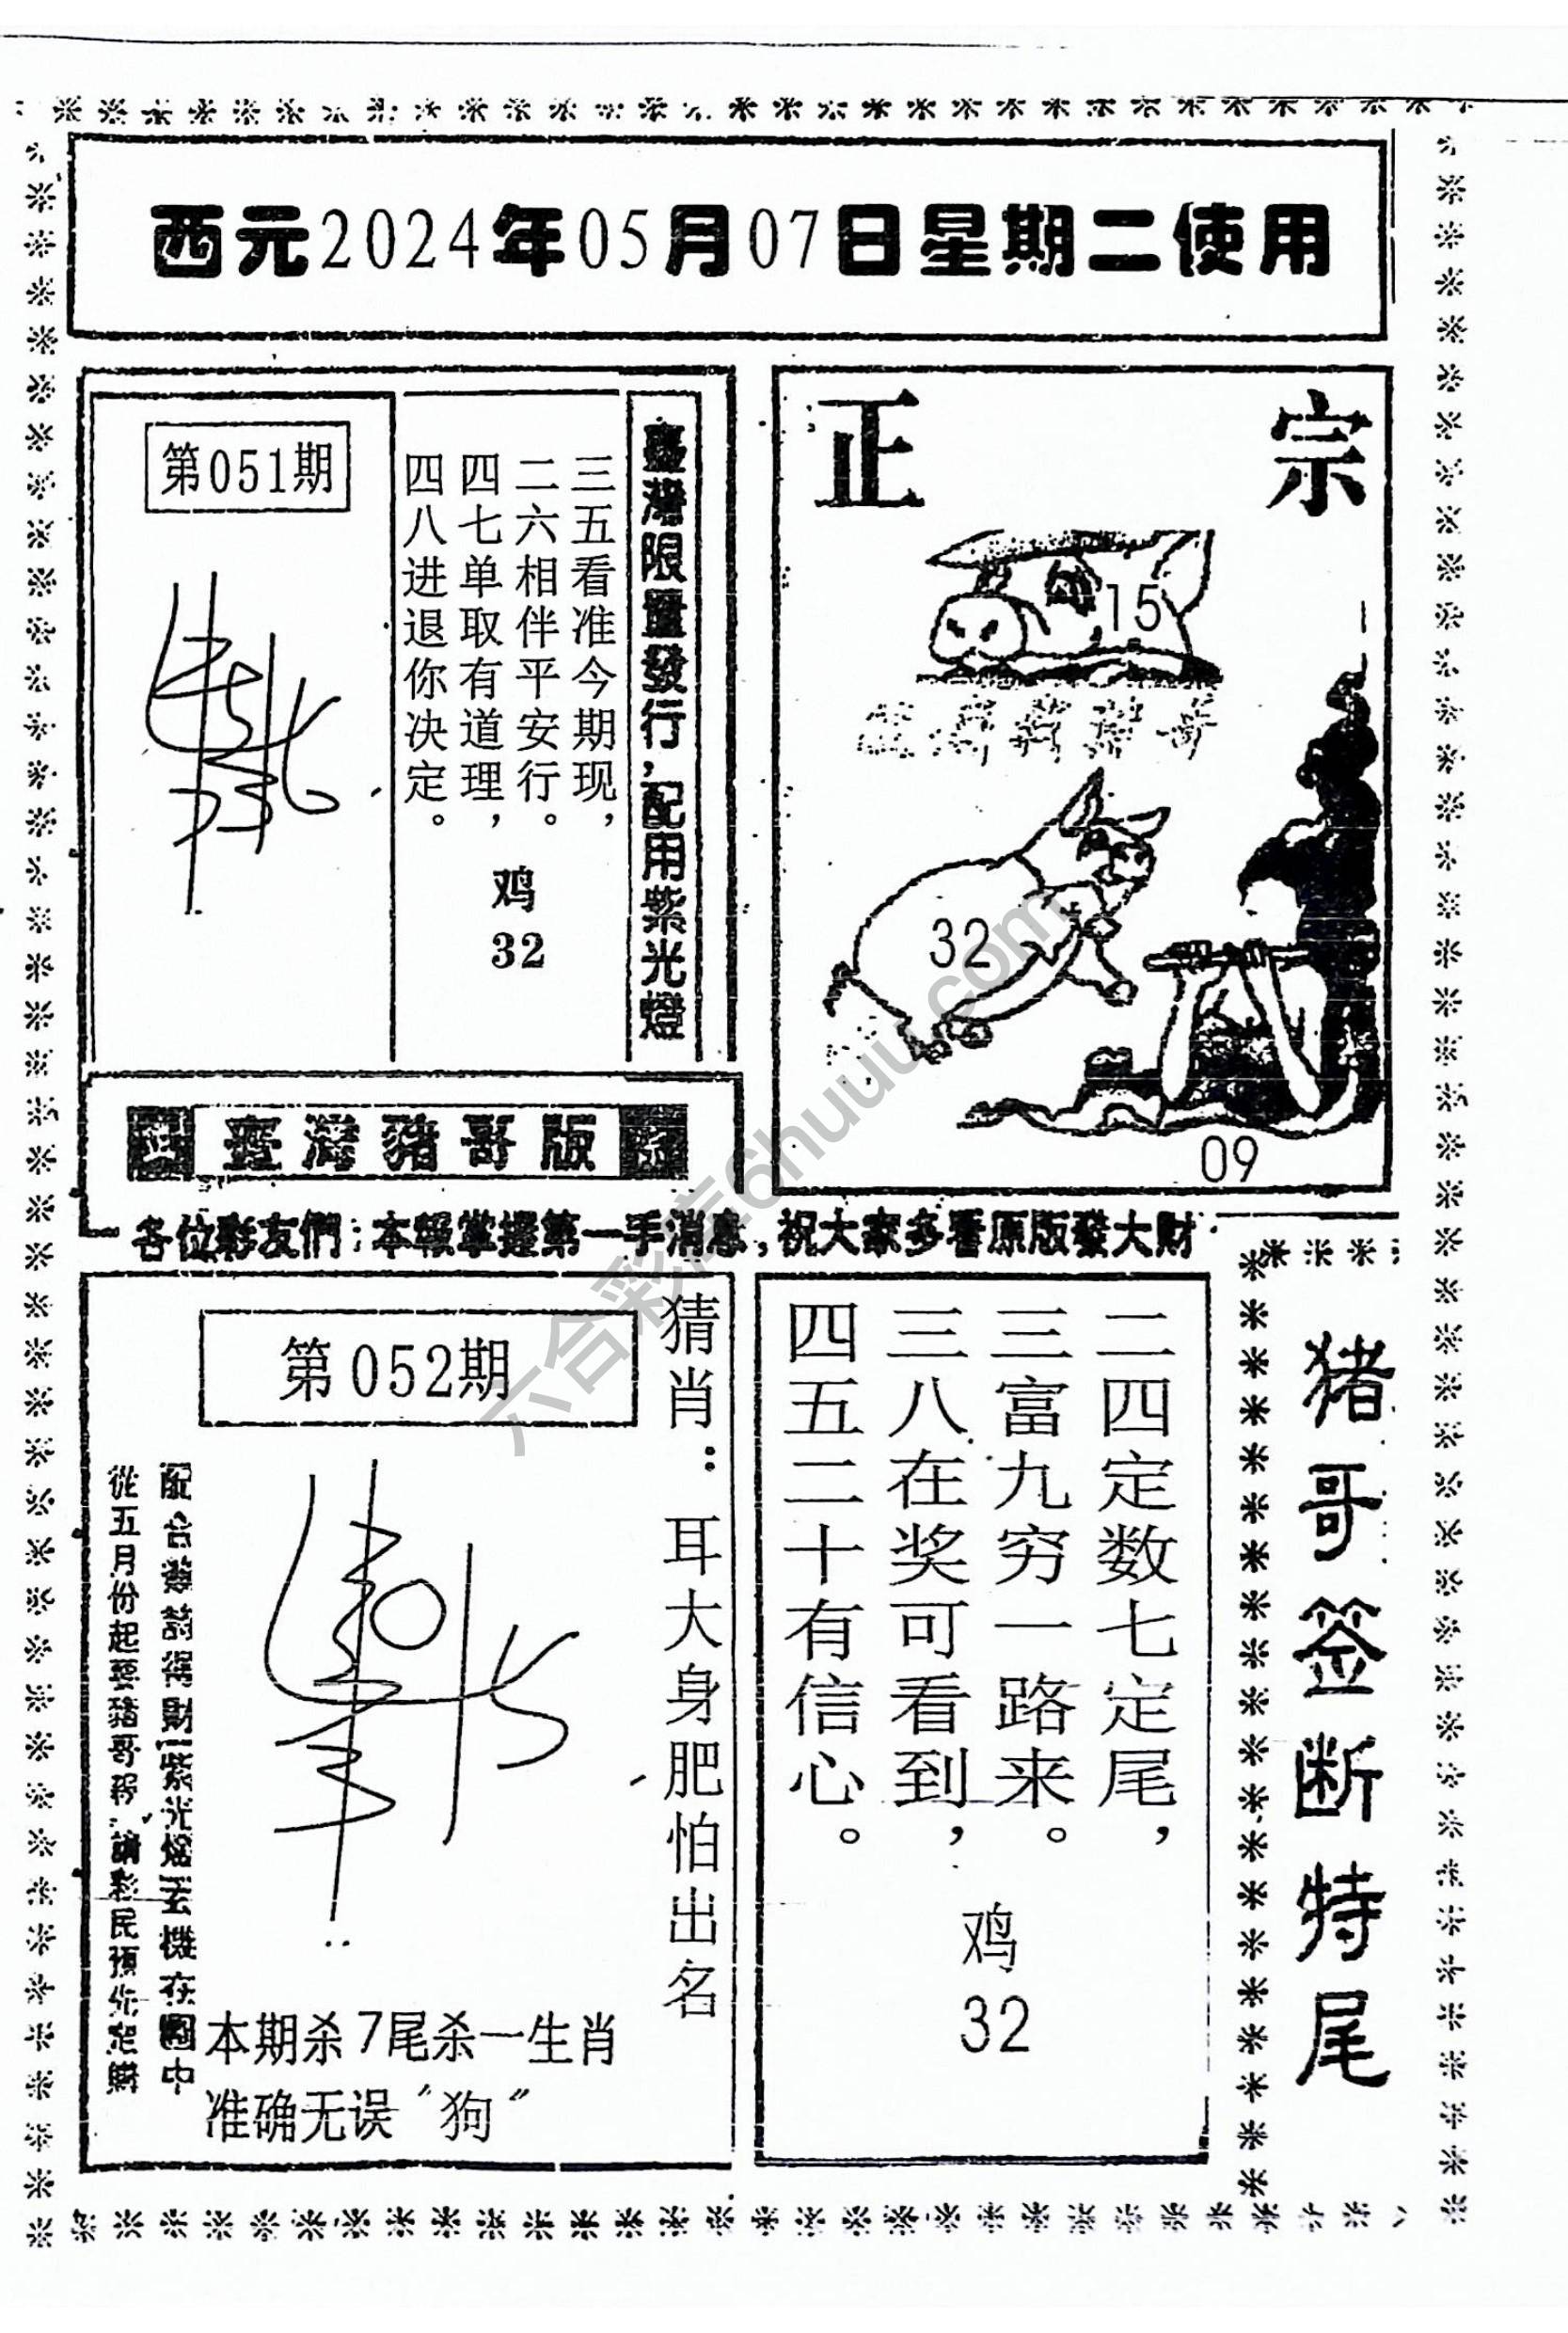 西元2024年05月07日星期二使用
第051期
臺灣限量發行,配用紫光燈
三五看准今期现，
二六相伴平安行。
四七单取有道理，
四八进退你决定。
鸡
32
正宗
15
32
09
臺灣豬哥版
各位彩友們：本報掌握第一手消息，祝大家多看原版發大財
第052期
猜肖：耳大身肥怕出名
本期杀7尾杀一生肖
准确无误“狗”
二四定数七定尾，
三富九穷一路来。
三八在奖可看到，
四五二十有信心。
鸡
32
猪哥签断特尾
六合彩库6huuu.com